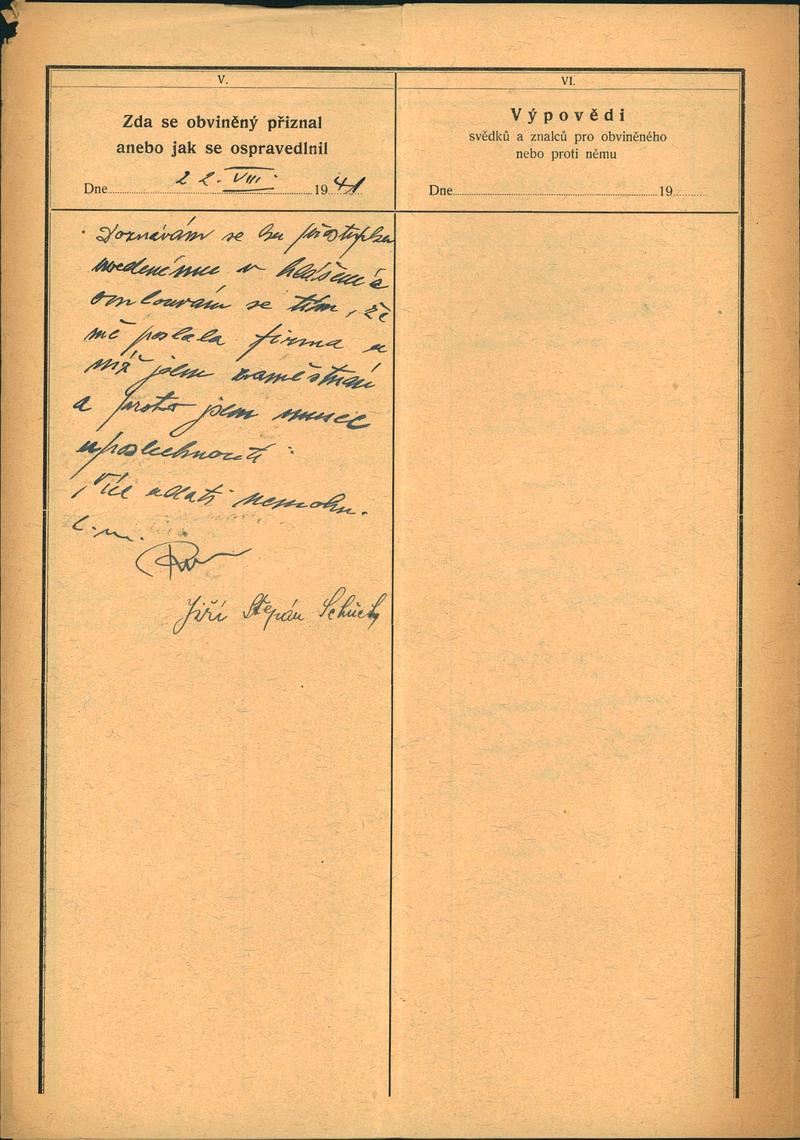 V.
Zda se obviněný přiznal
anebo jak se ospravedlnil
Dne 22. VIII. 1941
VI.
Výpovědi
svědků a znalců pro obviněného
nebo proti němu
Dne 19
Doznávám se ku přestupku
uvedenému v hlášení a
omlouvám se tím, že
mě poslala firma u
níž jsem zaměstnán
a proto jsem musel
uposlechnouti
Více udati nemohu.
Jiří Štěpán